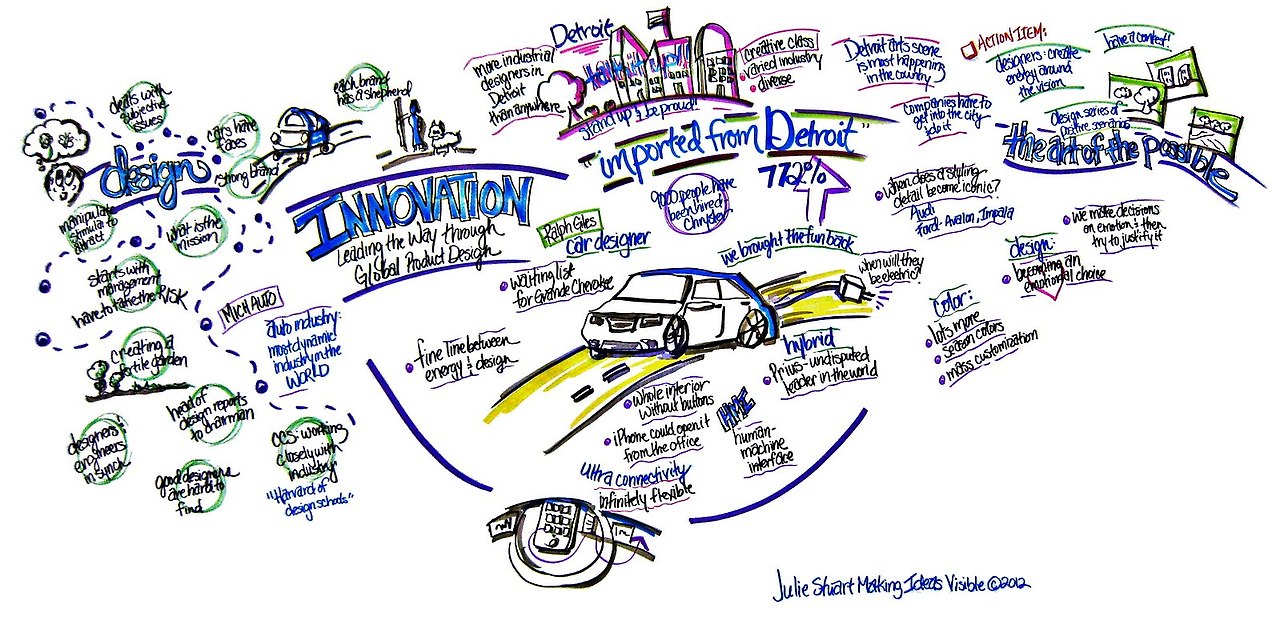 deals with
subjective
issues
cars have
faces
strong brand
design
manipulate
stimuli to
attract
what is the
mission
starts with
management
have to take the RISK
creating a
tile garden
head of
design reports
to chairman
designers &
engineers
in synch
good designers
are hard to
find
CCS: working
closely with
industry
"Harvard of
design schools"
MICH AUTO
auto industry:
most dynamic
industry in the
WORLD
each brand
has a shepherd
INNOVATION
Leading the Way through
Global Product Design
Detroit
more industrial
designers in
Detroit
than anywhere
stand up & be proud!
creative class
varied industry
diverse
Detroit arts scene
is most happening
in the country
companies have to
get into the city
do it
"imported from Detroit"
772%
9000 people have
been hired
Chrysler
Ralph Giles
car designer
we brought the fun back
waiting list
for Grande Cherokee
fine line between
energy & design
when will they
be electric?
hybrid
Prius-undisputed
leader in the world
whole interior
without buttons
iPhone could open it
from the office
HMI
human-
machine
interface
ultra connectivity
infinitely flexible
ACTION ITEM:
designers: create
energy around
the vision
have a contest!
design series of
positive scenarios
the art of the possible
when does a styling
detail become iconic?
Audi
Ford: Avalon, Impala
we make decisions
on emotion & then
try to justify it
design:
becoming an
emotional choice
color:
lots more
season colors
mass customization
Julie Stuart Making Ideas Visible ©2012